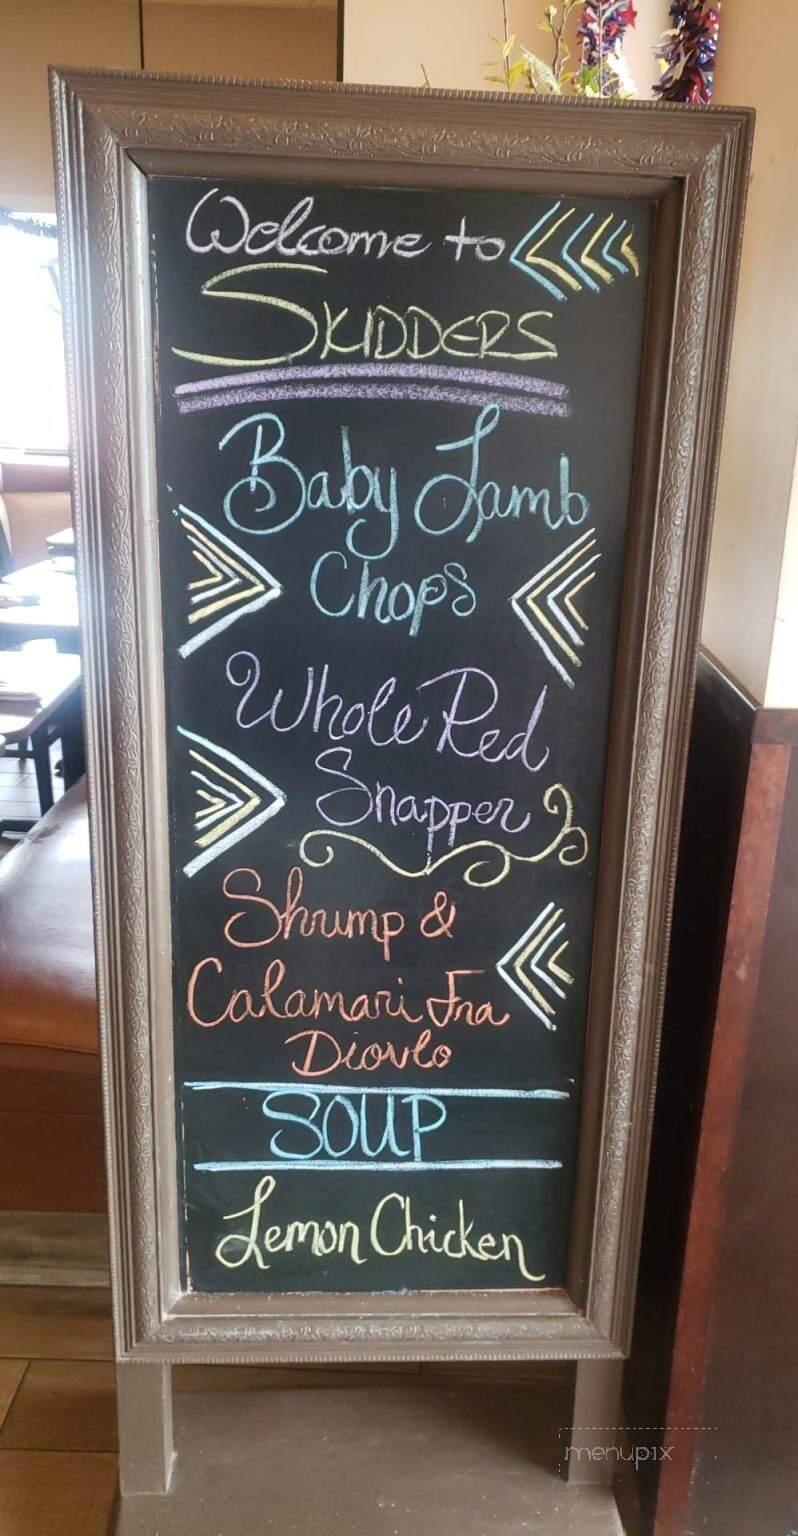 Welcome to
SKIDDERS
Baby Lamb
Chops
Whole Red
Snapper
Shrimp &
Calamari Fra
Diovlo
SOUP
Lemon Chicken
menupix